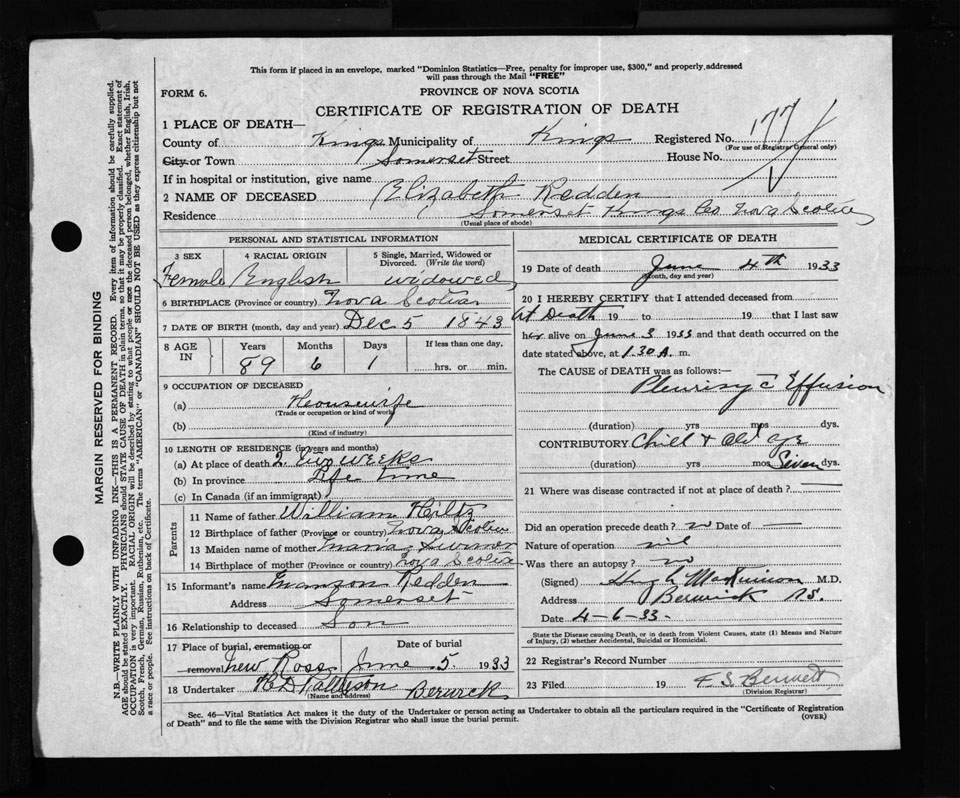 This form if placed in an envelope, marked "Dominion Statistics—Free, penalty for improper use, $300," and properly addressed
will pass through the Mail "FREE"
FORM 6.
PROVINCE OF NOVA SCOTIA
CERTIFICATE OF REGISTRATION OF DEATH
1 PLACE OF DEATH—
County of Kings Municipality of Kings Registered No. 177
(For use of Registrar General only)
City or Town Somerset Street House No.
If in hospital or institution, give name
2 NAME OF DECEASED Elizabeth Redden
Residence Somerset Kings Co Nova Scotia
(Usual place of abode)
PERSONAL AND STATISTICAL INFORMATION
3 SEX 4 RACIAL ORIGIN 5 Single, Married, Widowed or
Divorced. (Write the word)
Female English widowed
6 BIRTHPLACE (Province or country) Nova Scotia
7 DATE OF BIRTH (month, day and year) Dec 5 1843
8 AGE IN Years Months Days If less than one day,
89 6 1 hrs. or min.
9 OCCUPATION OF DECEASED
(a) Housewife
(Trade or occupation or kind of work)
(b)
(Kind of industry)
10 LENGTH OF RESIDENCE (in years and months)
(a) At place of death 2. two weeks
(b) In province Life time
(c) In Canada (if an immigrant)
Parents
11 Name of father William Hiltz
12 Birthplace of father (Province or country) Nova Scotia
13 Maiden name of mother Maria
14 Birthplace of mother (Province or country) Nova Scotia
15 Informant's name Redden
Address Somerset
16 Relationship to deceased Son
17 Place of burial, cremation or Date of burial
removal New Ross June 5. 1933
18 Undertaker Berwick
(Name and address)
MEDICAL CERTIFICATE OF DEATH
19 Date of death June 4th 1933
(month, day and year)
20 I HEREBY CERTIFY that I attended deceased from
At Death 19 to 19 that I last saw
her alive on June 3 1933 and that death occurred on the
date stated above, at 1.30 A. m.
The CAUSE of DEATH was as follows:—
Pleurisy c Effusion
(duration) yrs mos dys.
CONTRIBUTORY Chill & Old age
(duration) yrs mos Seven dys.
21 Where was disease contracted if not at place of death?
Did an operation precede death? no Date of
Nature of operation nil
Was there an autopsy? no
(Signed) Hugh MacKinnon M.D.
Address Berwick NS.
Date 4-6-33.
State the Disease causing Death, or in death from Violent Causes, state (1) Means and Nature
of Injury, (2) whether Accidental, Suicidal or Homicidal.
22 Registrar's Record Number
23 Filed 19
(Division Registrar)
Sec. 46—Vital Statistics Act makes it the duty of the Undertaker or person acting as Undertaker to obtain all the particulars required in the "Certificate of Registration
of Death" and to file the same with the Division Registrar who shall issue the burial permit.
(OVER)
MARGIN RESERVED FOR BINDING
N.B.—WRITE PLAINLY WITH UNFADING INK—THIS IS A PERMANENT RECORD. Every item of information should be carefully supplied.
AGE should be stated EXACTLY. PHYSICIANS should STATE CAUSE OF DEATH in plain terms, so that it may be properly classified. Exact statement of
OCCUPATION is very important. RACIAL ORIGIN will be described by stating to what people or race the deceased person belonged, whether English, Irish,
Scotch, French, German, Russian, Ruthenian, etc. The terms "AMERICAN" or "CANADIAN" SHOULD NOT BE USED as they express citizenship but not
a race or people. See instructions on back of Certificate.